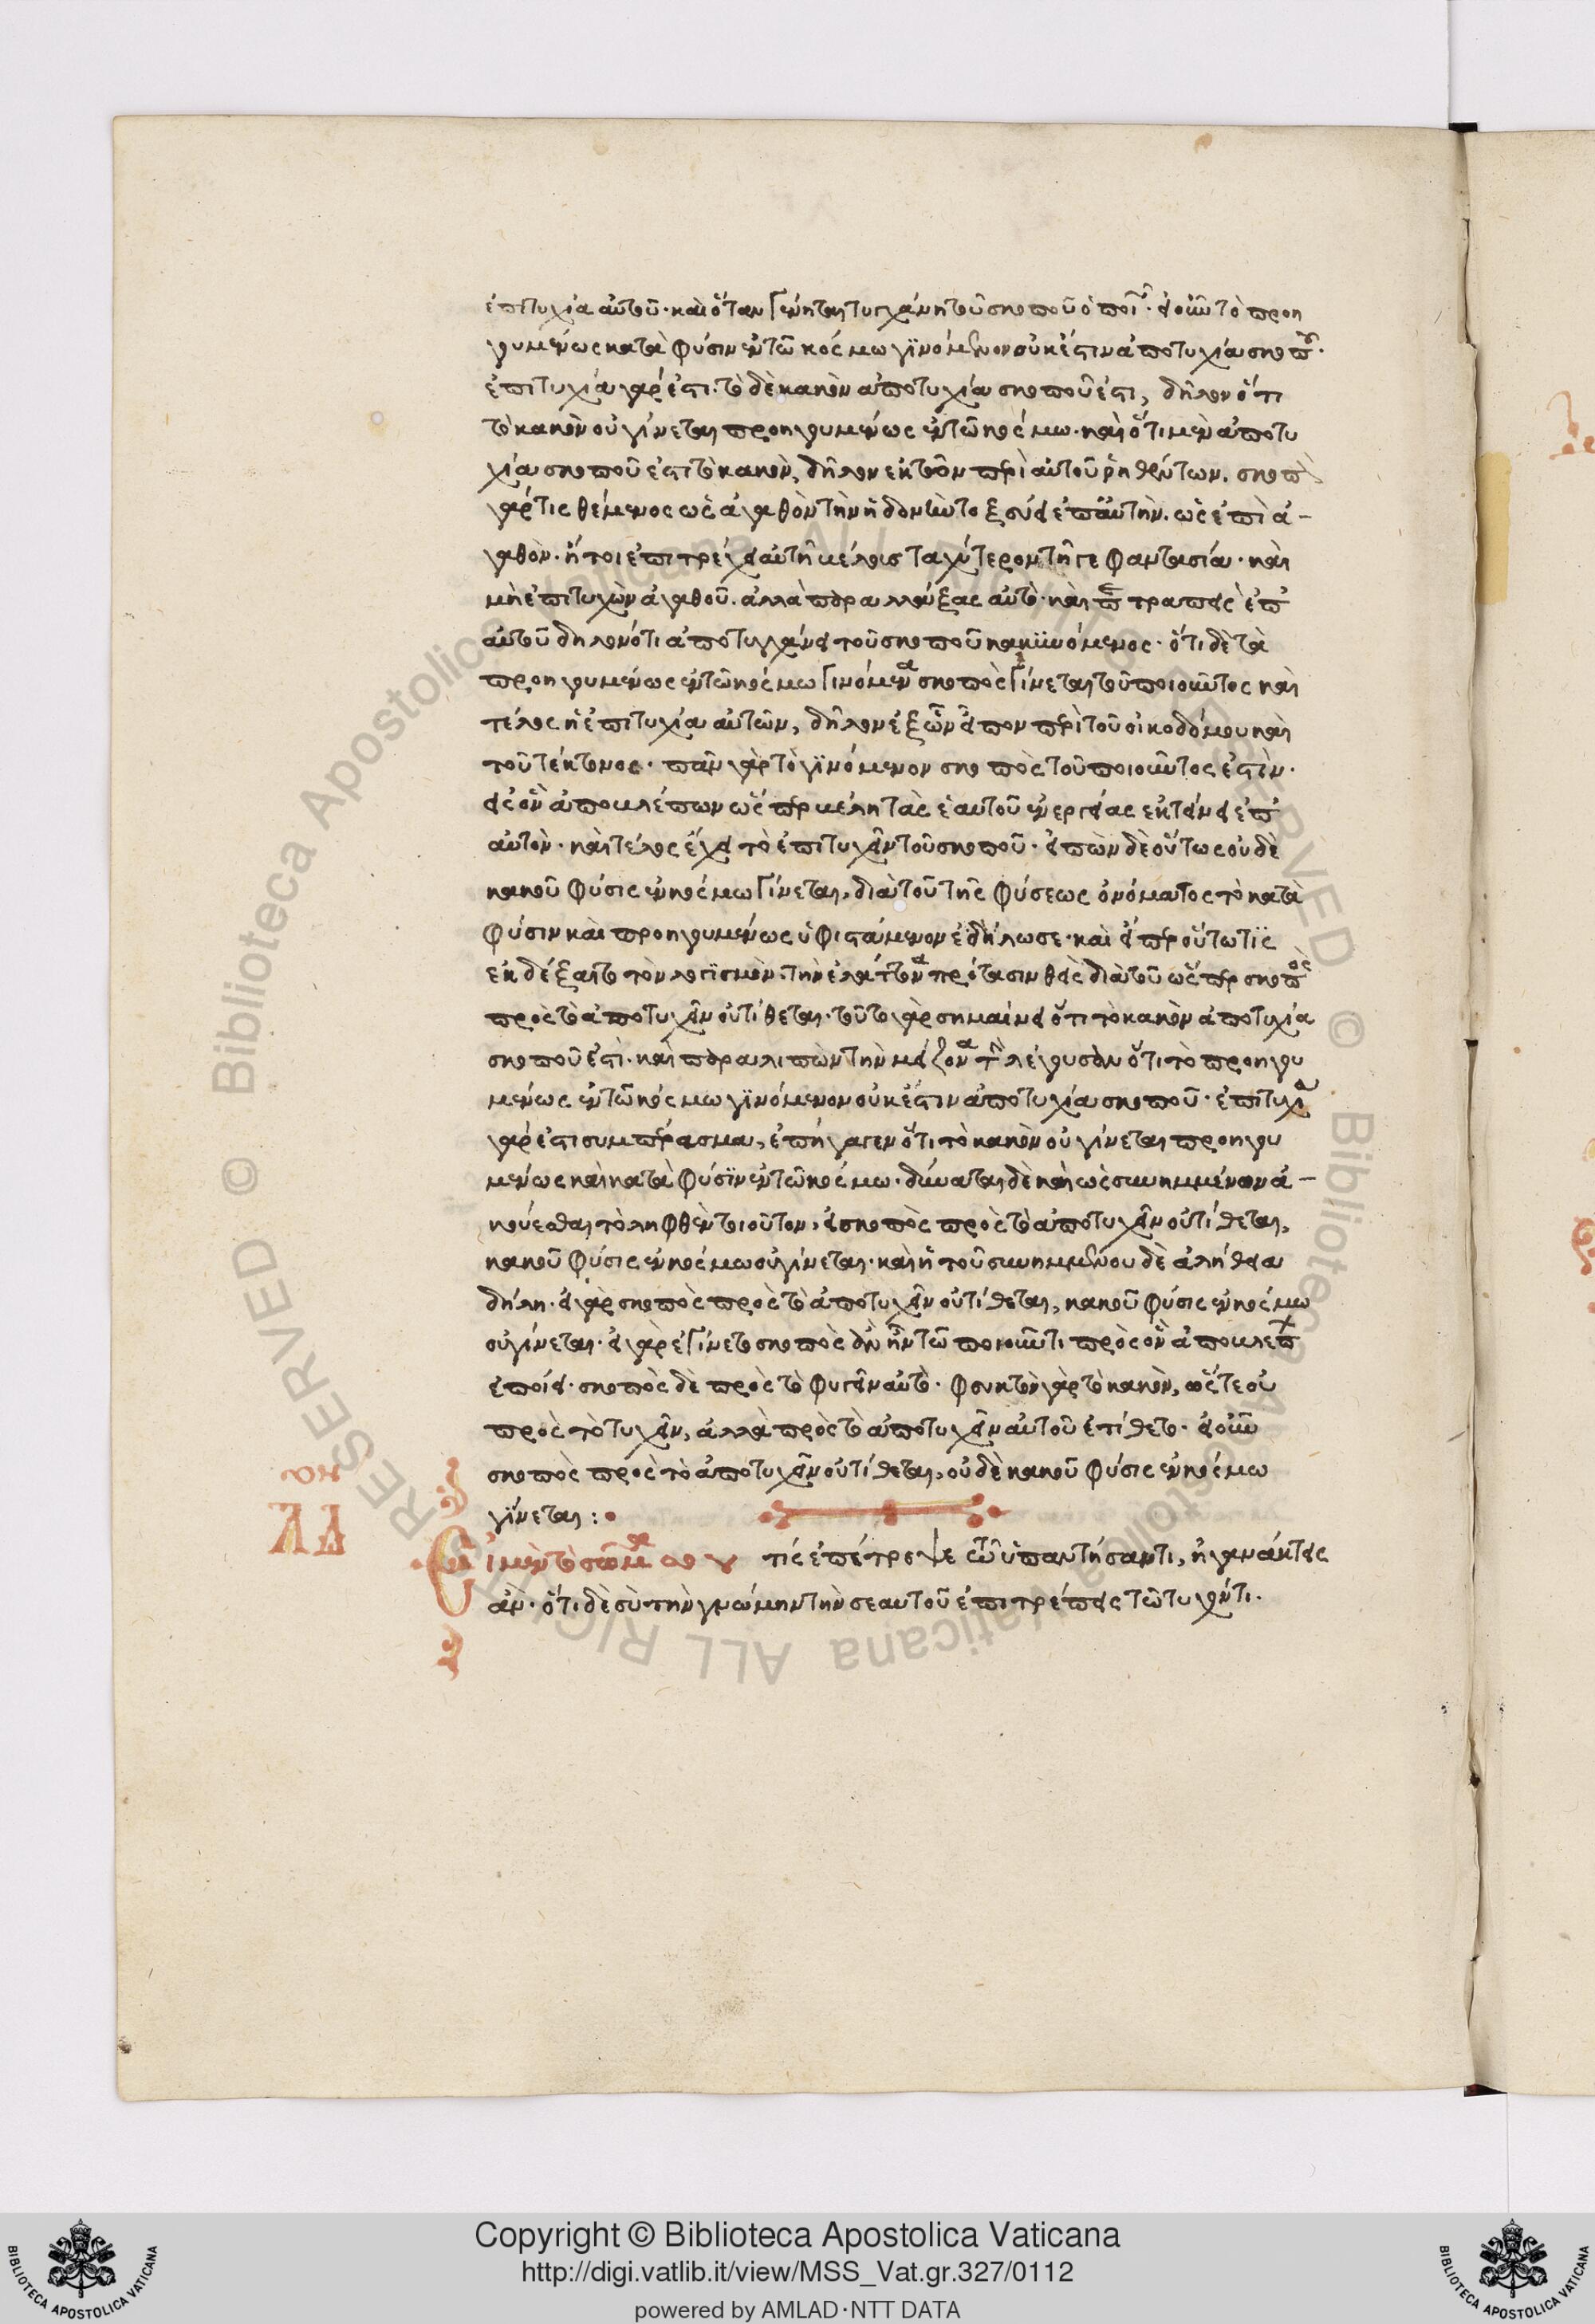 ἐπιτυχία αὐτοῦ· καὶ ὅταν γένηται τυγχάνη τοῦ σκοποῦ ὁ ποι· εἰ οὖν τὸ προη
γουμένως κατὰ φύσιν ἐν τῶ κόσμω γϊνόμενον οὐκ ἔστιν ἀποτυχία σκοπ·
ἐπιτυχία γάρ ἐστι· τὸ δὲ κακὸν ἀποτυχία σκοποῦ ἐστι, δῆλον ὅτι
τὸ κακὸν οὐ γίνεται προηγουμένως ἐν τῶ κόσμω· καὶ ὅτι μὲν ἀποτυ
χία σκοποῦ ἐστι τὸ κακὸν, δῆλον ἐκ τῶν περὶ αὐτοῦ ῥηθέντων. σκοπὸ
γάρ τις θέμενος ὡς ἀγαθὸν τὴν ἡδονὴν τοξεύει ἐπ' αὐτὴν. ὡς ἐπὶ ἀ-
γαθὸν. ἤτοι ἐπιτρέχει αὐτῆ βέλους ταχύτερον τῆ γε φαντασία· καὶ
μὴ ἐπιτυχὼν ἀγαθοῦ. ἀλλὰ παραλλάξας αὐτὸ· καὶ τραπεὶς ἐπ'
αὐτοῦ δηλονότι ἀποτυγχάνει τοῦ σκοποῦ κακϊνόμενος· ὅτι δὲ τὰ
προηγουμένως ἐν τῶ κόσμω γινόμενα σκοπὸς γίνεται τοῦ ποιοῦντος καὶ
τέλος ἡ ἐπιτυχία αὐτῶν, δῆλον ἐξ ὧν εἶπον περὶ τοῦ οἰκοδόμου καὶ
τοῦ τέκτονος· πᾶν γὰρ τὸ γϊνόμενον σκοπὸς τοῦ ποιοῦντος ἐστὶν·
εἰς ὃν ἀποβλέπων ὥσπερ βέλη τὰς ἑαυτοῦ ἐνεργείας ἐκτείνει ἐπ'
αὐτὸν· καὶ τέλος ἔχει τὸ ἐπιτυχεῖν τοῦ σκοποῦ· εἰπὼν δὲ οὕτως οὐδὲ
κακοῦ φύσις ἐν κόσμω γίνεται, διὰ τοῦ τῆς φύσεως ὀνόματος τὸ κατὰ
φύσιν καὶ προηγουμένως ὑφιστάμενον ἐδήλωσε· καὶ εἴπερ οὕτω τϊς
ἐκδέξαιτο τὸν λογϊσμὸν· τὴν ἐλάττονα πρότασιν θεὶς διὰ τοῦ ὥσπερ σκοπὸς
πρὸς τὸ ἀποτυχεῖν οὐ τίθεται· τοῦτο γὰρ σημαίνει ὅτι τὸ κακὸν ἀποτυχία
σκοποῦ ἐστὶ· καὶ παραλιπὼν τὴν μείζονα τὴν λέγουσαν ὅτι τὸ προηγου
μένως ἐν τῶ κόσμω γϊνόμενον οὐκ ἔστιν ἀποτυχία σκοποῦ· ἐπιτυχία
γάρ ἐστι συμπέρασμα, ἐπήγαγεν ὅτι τὸ κακὸν οὐ γίνεται προηγου
μένως καὶ κατὰ φύσϊν ἐν τῶ κόσμω· δύναται δὲ καὶ ὡς συνημμένον ἀ-
κούεσθαι τὸ ληφθὲν τοιοῦτον, εἰ σκοπὸς πρὸς τὸ ἀποτυχεῖν οὐ τίθεται,
κακοῦ φύσις ἐν κόσμω οὐ γίνεται· καὶ ἡ τοῦ συνημμένου δὲ ἀλήθεια
δήλη· εἰ γὰρ σκοπὸς πρὸς τὸ ἀποτυχεῖν οὐ τίθεται, κακοῦ φύσις ἐν κόσμω
οὐ γίνεται· εἰ γὰρ ἐγίνετο σκοπὸς ἂν ἦν τῶ ποιοῦντι πρὸς ὃν ἀποβλέπ
ἐποίει· σκοπὸς δὲ πρὸς τὸ φυγεῖν αὐτὸ· φευκτὸν γὰρ τὸ κακὸν, ὥστε οὐ
πρὸς τὸ τυχεῖν, ἀλλὰ πρὸς τὸ ἀποτυχεῖν αὐτοῦ ἐτίθετο· εἰ οὖν
σκοπὸς πρὸς τὸ ἀποτυχεῖν οὐ τίθεται, οὐδὲ κακοῦ φύσις ἐν κόσμω
γϊνεται :
Εἰ μὲν τὸ σῶμα σου τίς ἐπέτρεψε τῶ ὑπαντήσαντι, ἠγανάκτεις
ἂν· ὅτι δὲ σὺ τὴν γνώμην τὴν σεαυτοῦ ἐπιτρέπεις τῶ τυχόντι.
Copyright © Biblioteca Apostolica Vaticana
http://digi.vatlib.it/view/MSS_Vat.gr.327/0112
powered by AMLAD·NTT DATA